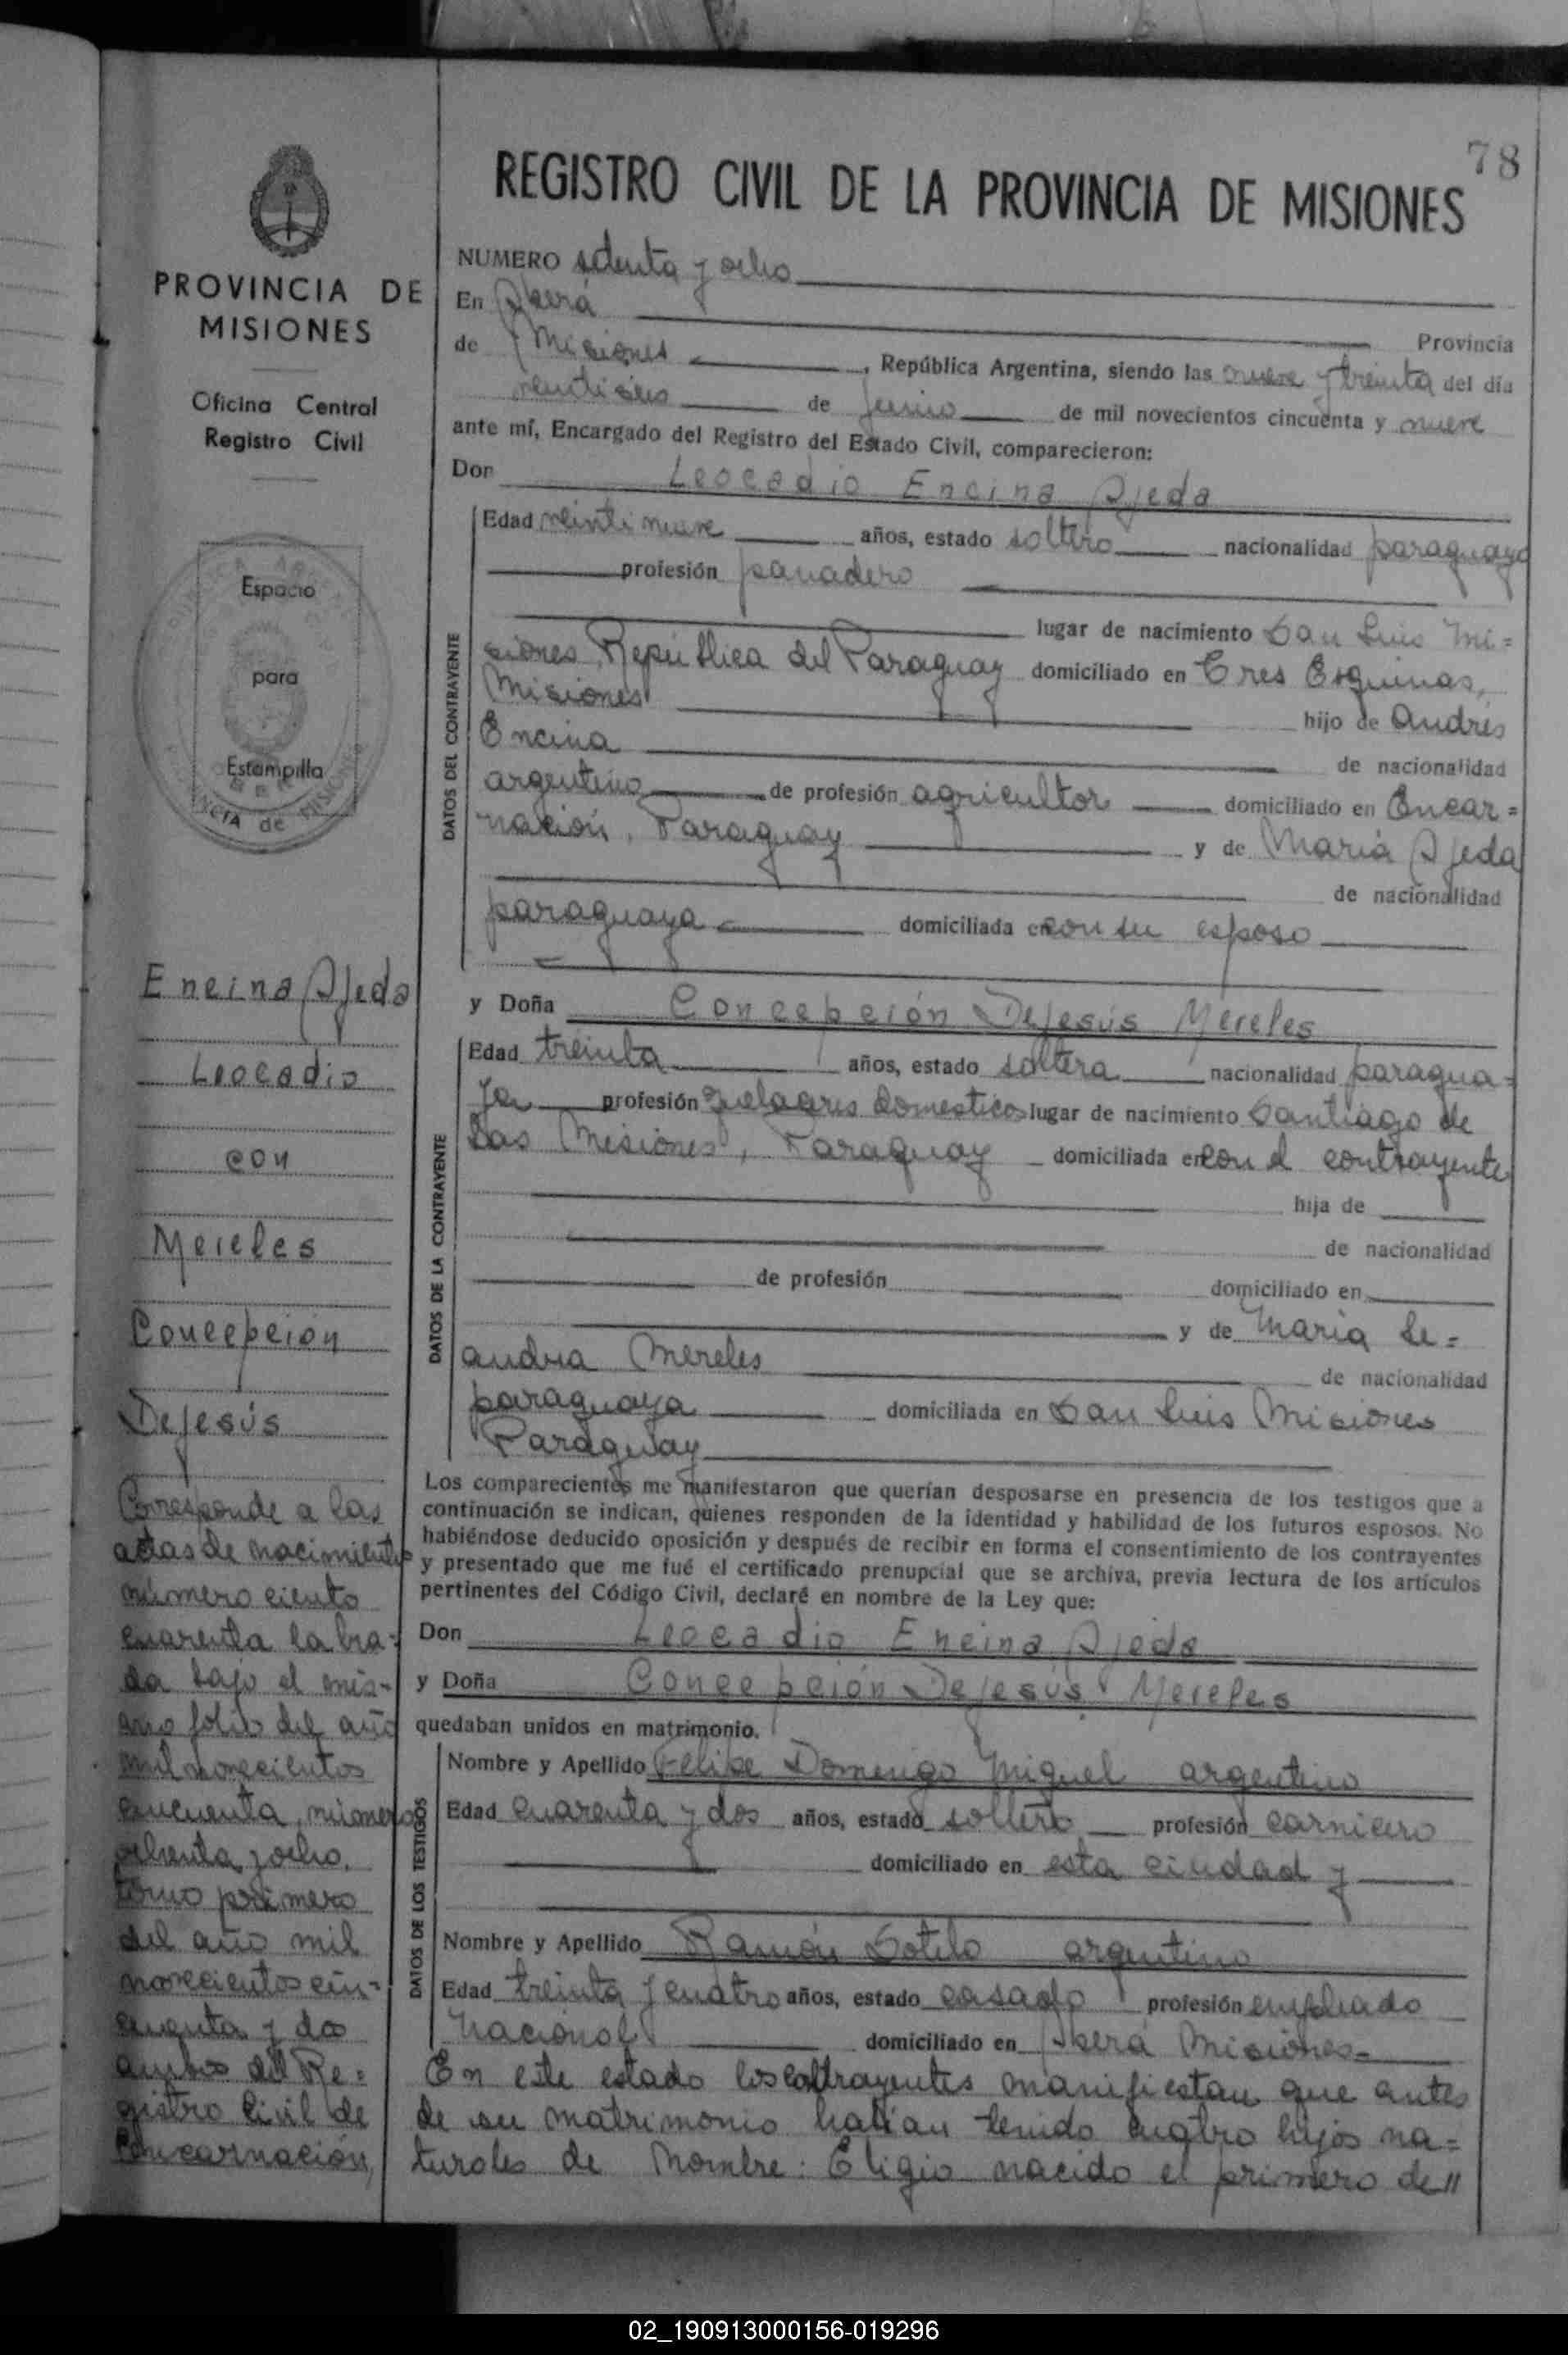 78
REGISTRO CIVIL DE LA PROVINCIA DE MISIONES
PROVINCIA DE
MISIONES
Oficina Central
Registro Civil
Espacio
para
Estampilla
Encina Ojeda
Leocadio
con
Mereles
Concepción
DeJesús
Corresponde a las
actas de nacimientos
número ciento
cuarenta labra-
da bajo el mis-
mo folio del año
mil novecientos
cincuenta, número
ochenta y ocho,
tomo primero
del año mil
novecientos cin-
cuenta y dos
ambos del Re-
gistro Civil de
Encarnación,
NUMERO setenta y ocho
En Oberá Provincia
de Misiones, República Argentina, siendo las nueve y treinta del día
de junio de mil novecientos cincuenta y nueve
ante mí, Encargado del Registro del Estado Civil, comparecieron:
Don Leocadio Encina Ojeda
DATOS DEL CONTRAYENTE
Edad veintinueve años, estado soltero nacionalidad paraguayo
profesión panadero
lugar de nacimiento San Luis Mi=
siones, República del Paraguay domiciliado en Tres Esquinas,
Misiones hijo de Andrés
Encina de nacionalidad
argentino de profesión agricultor domiciliado en Encar=
nación, Paraguay y de María Ojeda
de nacionalidad
paraguaya domiciliada en con su esposo
y Doña Concepción DeJesús Mereles
DATOS DE LA CONTRAYENTE
Edad treinta años, estado soltera nacionalidad paragua=
ya profesión quehaceres domesticos lugar de nacimiento Santiago de
Las Misiones, Paraguay domiciliada en con el contrayente
hija de
de nacionalidad
de profesión domiciliado en
y de María Le=
andra Mereles de nacionalidad
paraguaya domiciliada en San Luis Misiones
Paraguay
Los comparecientes me manifestaron que querían desposarse en presencia de los testigos que a
continuación se indican, quienes responden de la identidad y habilidad de los futuros esposos. No
habiéndose deducido oposición y después de recibir en forma el consentimiento de los contrayentes
y presentado que me fué el certificado prenupcial que se archiva, previa lectura de los artículos
pertinentes del Código Civil, declaré en nombre de la Ley que:
Don Leocadio Encina Ojeda
y Doña Concepción DeJesús Mereles
quedaban unidos en matrimonio.
DATOS DE LOS TESTIGOS
Nombre y Apellido Felipe Domingo Miguel argentino
Edad cuarenta y dos años, estado soltero profesión carnicero
domiciliado en esta ciudad y
Nombre y Apellido Ramón Sotelo argentino
Edad treinta y cuatro años, estado casado profesión empleado
Nacional domiciliado en Oberá Misiones=
En este estado los contrayentes manifiestan que antes
de su matrimonio habían tenido cuatro hijos na=
turales de nombre: Eligio nacido el primero de"
02_190913000156-019296